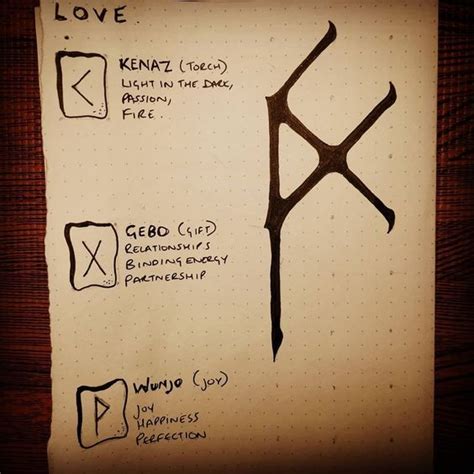 LOVE.
KENAZ (TORCH)
LIGHT IN THE DARK,
PASSION,
FIRE.
GEBO (GIFT)
RELATIONSHIPS
BINDING ENERGY
PARTNERSHIP
WUNJO (JOY)
JOY
HAPPINESS
PERFECTION